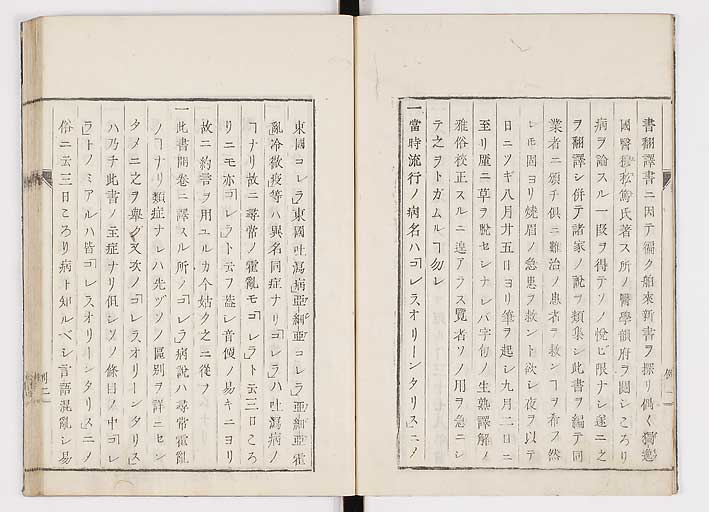 書翻譯書ニ因テ徧ク舶來新書ヲ探リ偶々獨逸
國醫撤私篤氏著ス所ノ醫學韻府ヲ閲シころり
病ヲ論スル一段ヲ得テソノ悅ビ限ナシ遂ニ之
ヲ翻譯シ併テ諸家ノ說ヲ類集シ此書ヲ編テ同
業者ニ頒チ俱ニ難治ノ患者ヲ救ンヿヲ希フ然
レモ固ヨリ燒眉ノ急患ヲ救ント欲シ夜ヲ以テ
日ニツギ八月廿五日ヨリ筆ヲ起シ九月二日ニ
至リ屢ニ草ヲ脫セシナレバ字句ノ生熟譯解ノ
雅俗校正スルニ遑アラス覽者ソノ用ヲ急ニシ
テ之ヲトガムルヿ勿レ
一當時流行ノ病名ハ「コレラ、オリーンタリス」ニノ
東國コレラ」東國吐瀉病」亞細亞コレラ」亞細亞霍
亂冷徴疫」等ハ異名同症ナリ「コレラ」ハ吐瀉病ノ
ヿナリ故ニ尋常ノ霍亂モ「コレラ」ト云三日ころ
リニモ亦「コレラ」ト云フ蓋シ音便ノ易キニヨリ
故ニ約言ヲ用ユルカ今姑ク之ニ從フ
一此書開卷ニ譯スル所ノ「コレラ」病說ハ尋常霍亂
ノヿナリ類症ナレハ先ヅソノ區別ヲ詳ニセン
タメニ之ヲ擧グ又次ノ「コレラ、オリーンタリス」
ハ乃チ此書ノ主症ナリ但シソノ條目ノ中「コレ
ラ」トノミアルハ皆「コレラ、オリーンタリス」ニノ
俗ニ云三日ころり病ト知ルベシ言語混亂シ易